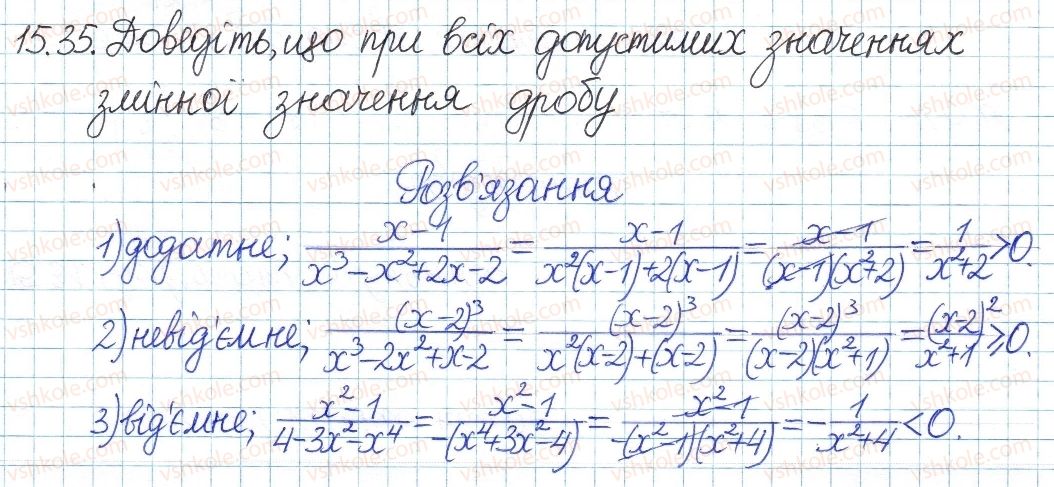 15.35. Доведіть, що при всіх допустимих значеннях
змінної значення дробу
Розв'язання
1) додатне; \frac{x-1}{x^3-x^2+2x-2} = \frac{x-1}{x^2(x-1)+2(x-1)} = \frac{x-1}{(x-1)(x^2+2)} = \frac{1}{x^2+2} > 0.
2) невід'ємне; \frac{(x-2)^3}{x^3-2x^2+x-2} = \frac{(x-2)^3}{x^2(x-2)+(x-2)} = \frac{(x-2)^3}{(x-2)(x^2+1)} = \frac{(x-2)^2}{x^2+1} ≥ 0.
3) від'ємне; \frac{x^2-1}{4-3x^2-x^4} = \frac{x^2-1}{-(x^4+3x^2-4)} = \frac{x^2-1}{-(x^2-1)(x^2+4)} = -\frac{1}{x^2+4} < 0.